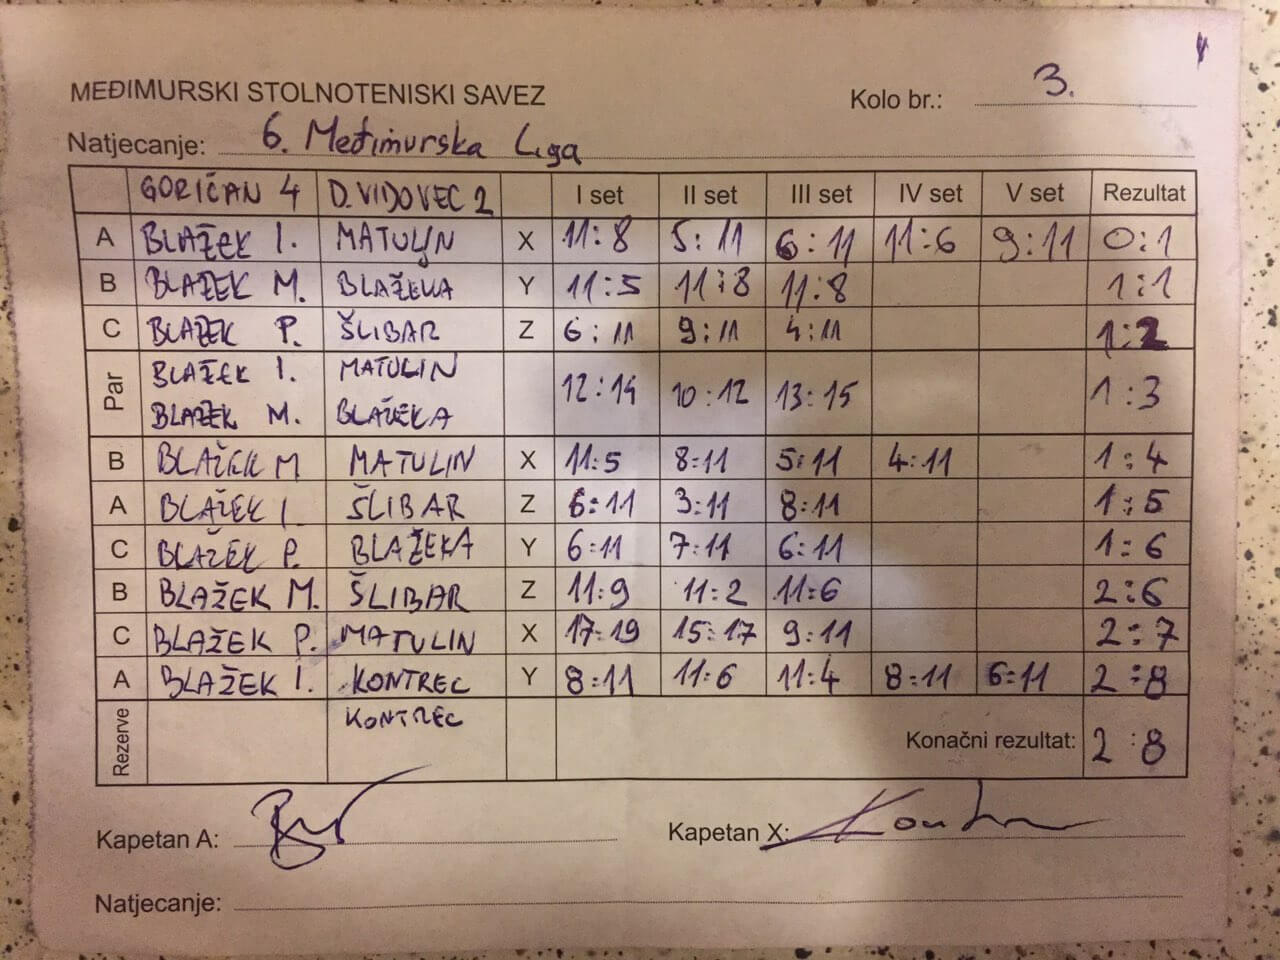 MEĐIMURSKI STOLNOTENISKI SAVEZ Kolo br.: 3.
Natjecanje: 6. Međimurska Liga
GORIČAN 4 D.VIDOVEC 2 I set II set III set IV set V set Rezultat
A BLAŽEK I. MATULIN X 11:8 5:11 6:11 11:6 9:11 0:1
B BLAŽEK M. BLAŽEKA Y 11:5 11:8 11:8 1:1
C BLAŽEK P. ŠLIBAR Z 6:11 9:11 4:11 1:2
Par BLAŽEK I. MATULIN 12:14 10:12 13:15 1:3
BLAŽEK M. BLAŽEKA
B BLAŽEK M MATULIN X 11:5 8:11 5:11 4:11 1:4
A BLAŽEK I ŠLIBAR Z 6:11 3:11 8:11 1:5
C BLAŽEK P. BLAŽEKA Y 6:11 7:11 6:11 1:6
B BLAŽEK M. ŠLIBAR Z 11:9 11:2 11:6 2:6
C BLAŽEK P. MATULIN X 17:19 15:17 9:11 2:7
A BLAŽEK I. KONTREC Y 8:11 11:6 11:4 8:11 6:11 2:8
Rezerve KONTREC Konačni rezultat: 2:8
Kapetan A: Kapetan X:
Natjecanje: